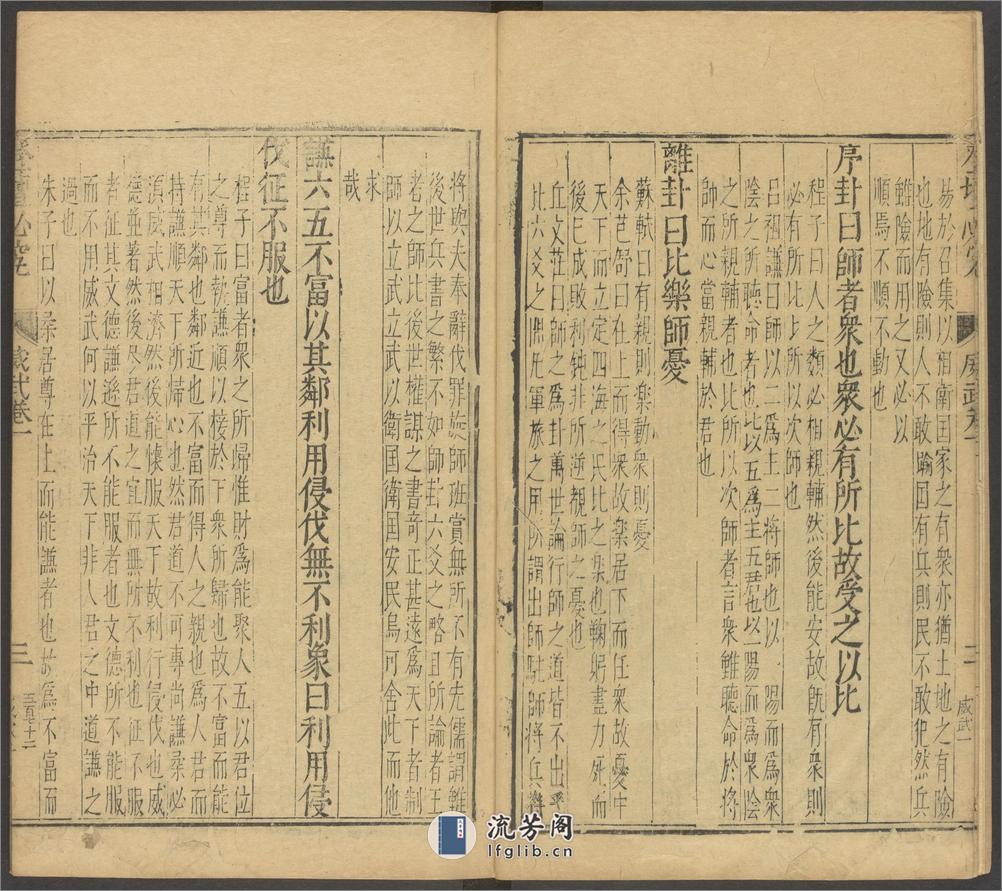 易於召集以捍衛国家之有衆亦猶土地之有險
也地有險則人不敢踰国有兵則民不敢犯然兵
雖險而用之又必以
順焉不順不動也
序卦曰師者衆也衆必有所比故受之以比
程子曰人之類必相親輔然後能安故旣有衆則
必有所比比所以次師也
吕祖謙曰師以二爲主二將師也以一陽而爲衆
陰之所聽命者也比以五爲主五君也以一陽而爲衆陰
之所親輔者也比所以次師者言衆雖聽命於將
師而心當親輔於君也
雜卦曰比樂師憂
蘇軾曰有親則樂動衆則憂
余芑舒曰在上而得衆故樂居下而任衆故憂中
天下而立定四海之民比之樂也鞠躬盡力死而
後已成敗利鈍非所逆覩師之憂也
丘文莊曰師之爲卦萬世論行師之道皆不出乎
比六爻之間凡軍旅之用所謂出師駐師將兵
將與夫奉辭伐罪旋師班賞無所不有先儒謂雖
後世兵書之繁不如師卦六爻之略且所論者王
者之師比之後世權謀之書奇正甚遠爲天下者制
師以立武立武以衛国衛国安民烏可舍此而他
求
哉
謙六五不富以其鄰利用侵伐無不利象曰利用侵
伐征不服也
程子曰富者衆之所歸惟財爲能聚人五以君位
之尊而執謙順以接於下衆所歸也故不富而能
有其鄰也鄰近也不富而得人之親也爲人君而
持謙順天下所歸心也然君道不可專尚謙柔必
須威武相濟然後能懷服天下故利行侵伐也威
德並著然後尽君道之宜而無所不利也征不服
者征其文德謙遜所不能服者也文德所不能服
而不用威武何以平治天下非人君之中道謙之
過也
朱子曰以柔居尊在上而能謙者也故爲不富而
威武卷一
三
三百七十二
二
威武一
流芳阁
lfglib.cn